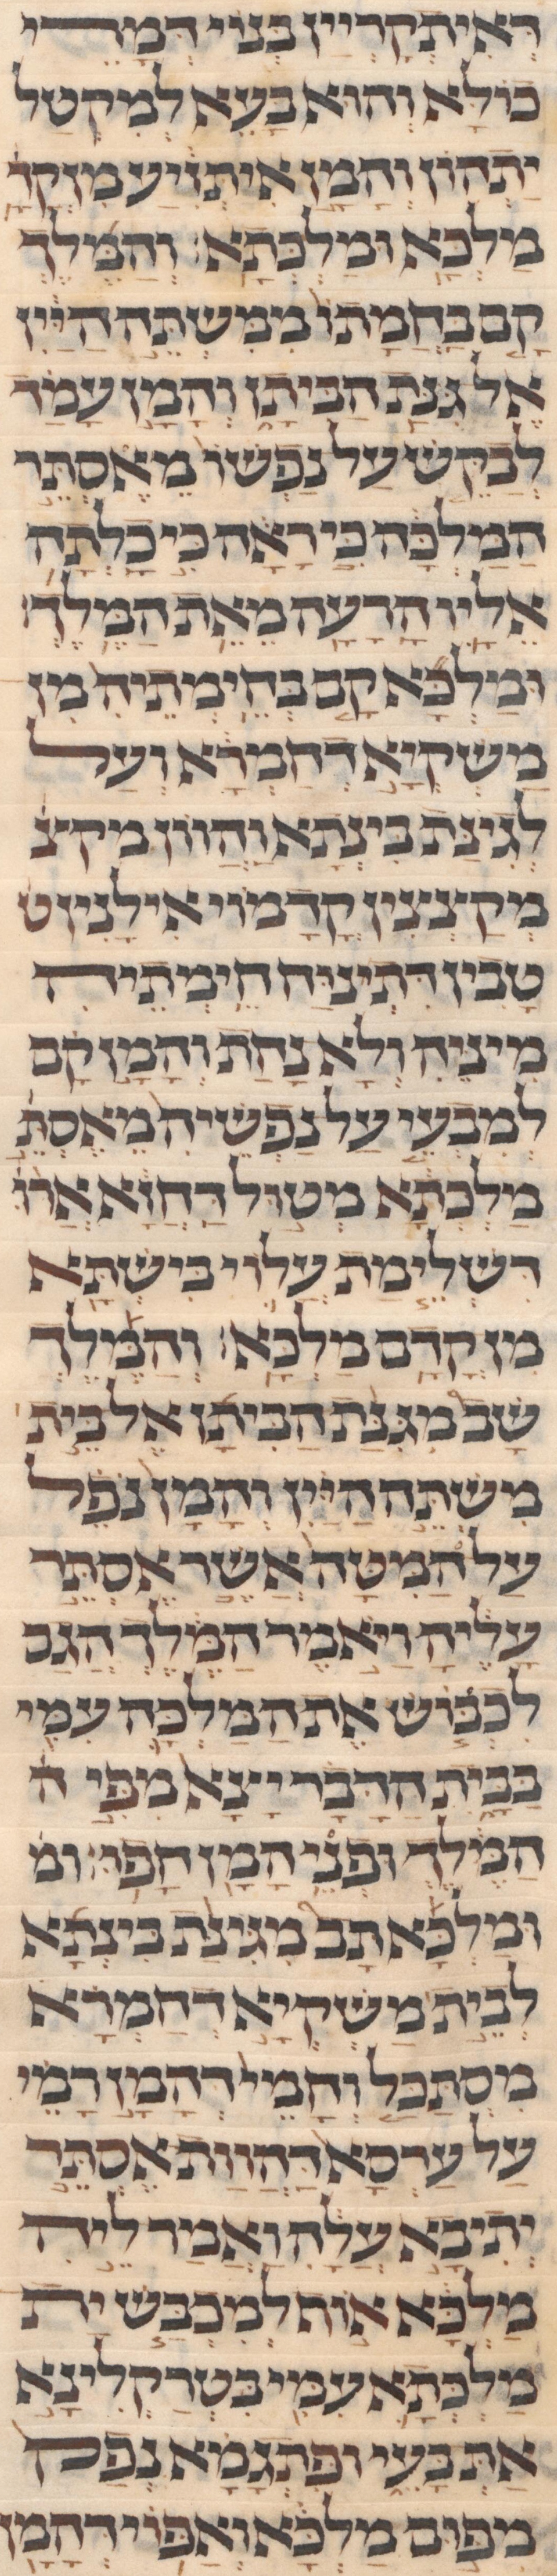 דאיתקריין בני דמהרי
כולא והוא בעא למקטל
יתהון והמן איתויע מן קד
מלכא ומלכתא׃ והמלך
קם בחמתו ממשתה היין
אל גנת הביתן והמן עמד
לבקש על נפשו מאסתר
המלכה כי ראה כי כלתה
אליו הרעה מאת המלך׃
ומלכא קם בחימתיה מן
משקיא דחמרא ועל
לגינת ביתנא והוון מקצ
מקצצין קדמוי אילנין ט
טבין דתינוח חימתיה
מיניה ולא נחת והמן קם
למבעי על נפשיה מאסת
מלכתא מטול דחזא ארו
דשלימת עלוי בישתא
מן קדם מלכא׃ והמלך
שב מגנת הביתן אל בית
משתה היין והמן נפל
על המטה אשר אסתר
עליה ויאמר המלך הגם
לכבוש את המלכה עמי
בבית הדבר יצא מפי ה
המלך ופני המן חפו׃ ומ
ומלכא תב מגינת ביתנא
לבית משקיא דחמרא
מסתכל וחמי דהמן רמי
על ערסא דהוות אסתר
יתיבא עלה ואמר ליה
מלכא אות למכבש ית
מלכתא עמי בטרקלינא
את בעי ופתגמא נפק
מפום מלכא ואפוי דהמן